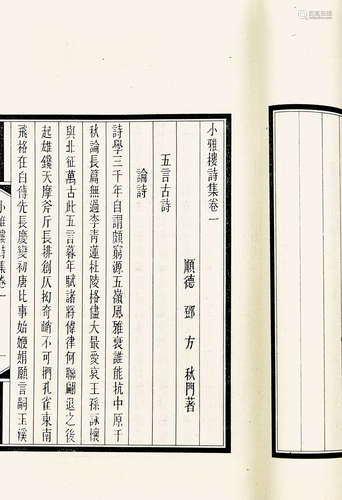 小雅樓詩集卷一
順德 鄧方 秋門著
五言古詩
論詩
詩學三千年自謂頗窮源五嶺風雅衰誰能抗中原千
秋論長篇無過李青蓮杜陵格儘大最愛哀王孫詠懷
與北征萬古此五言暮年賦諸將偉律何聯翩退之後
起雄鑱天摩斧斤長排創仄拗奇峭不可捫孔雀東南
飛格在白傅先長慶變初唐比事始嫂娟願言嗣玉溪
小雅樓詩集卷一